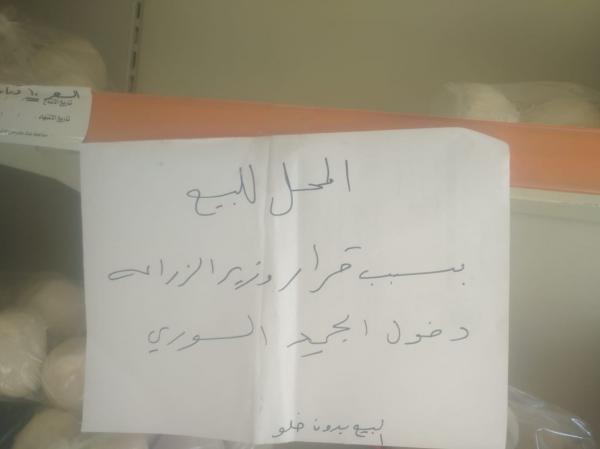 السعر ١٠
تاريخ الانتاج
تاريخ الانتهاء
المحل للبيع
بسبب قرار وزير الزراعه
دخول الجميد السوري
البيع بدون خلو